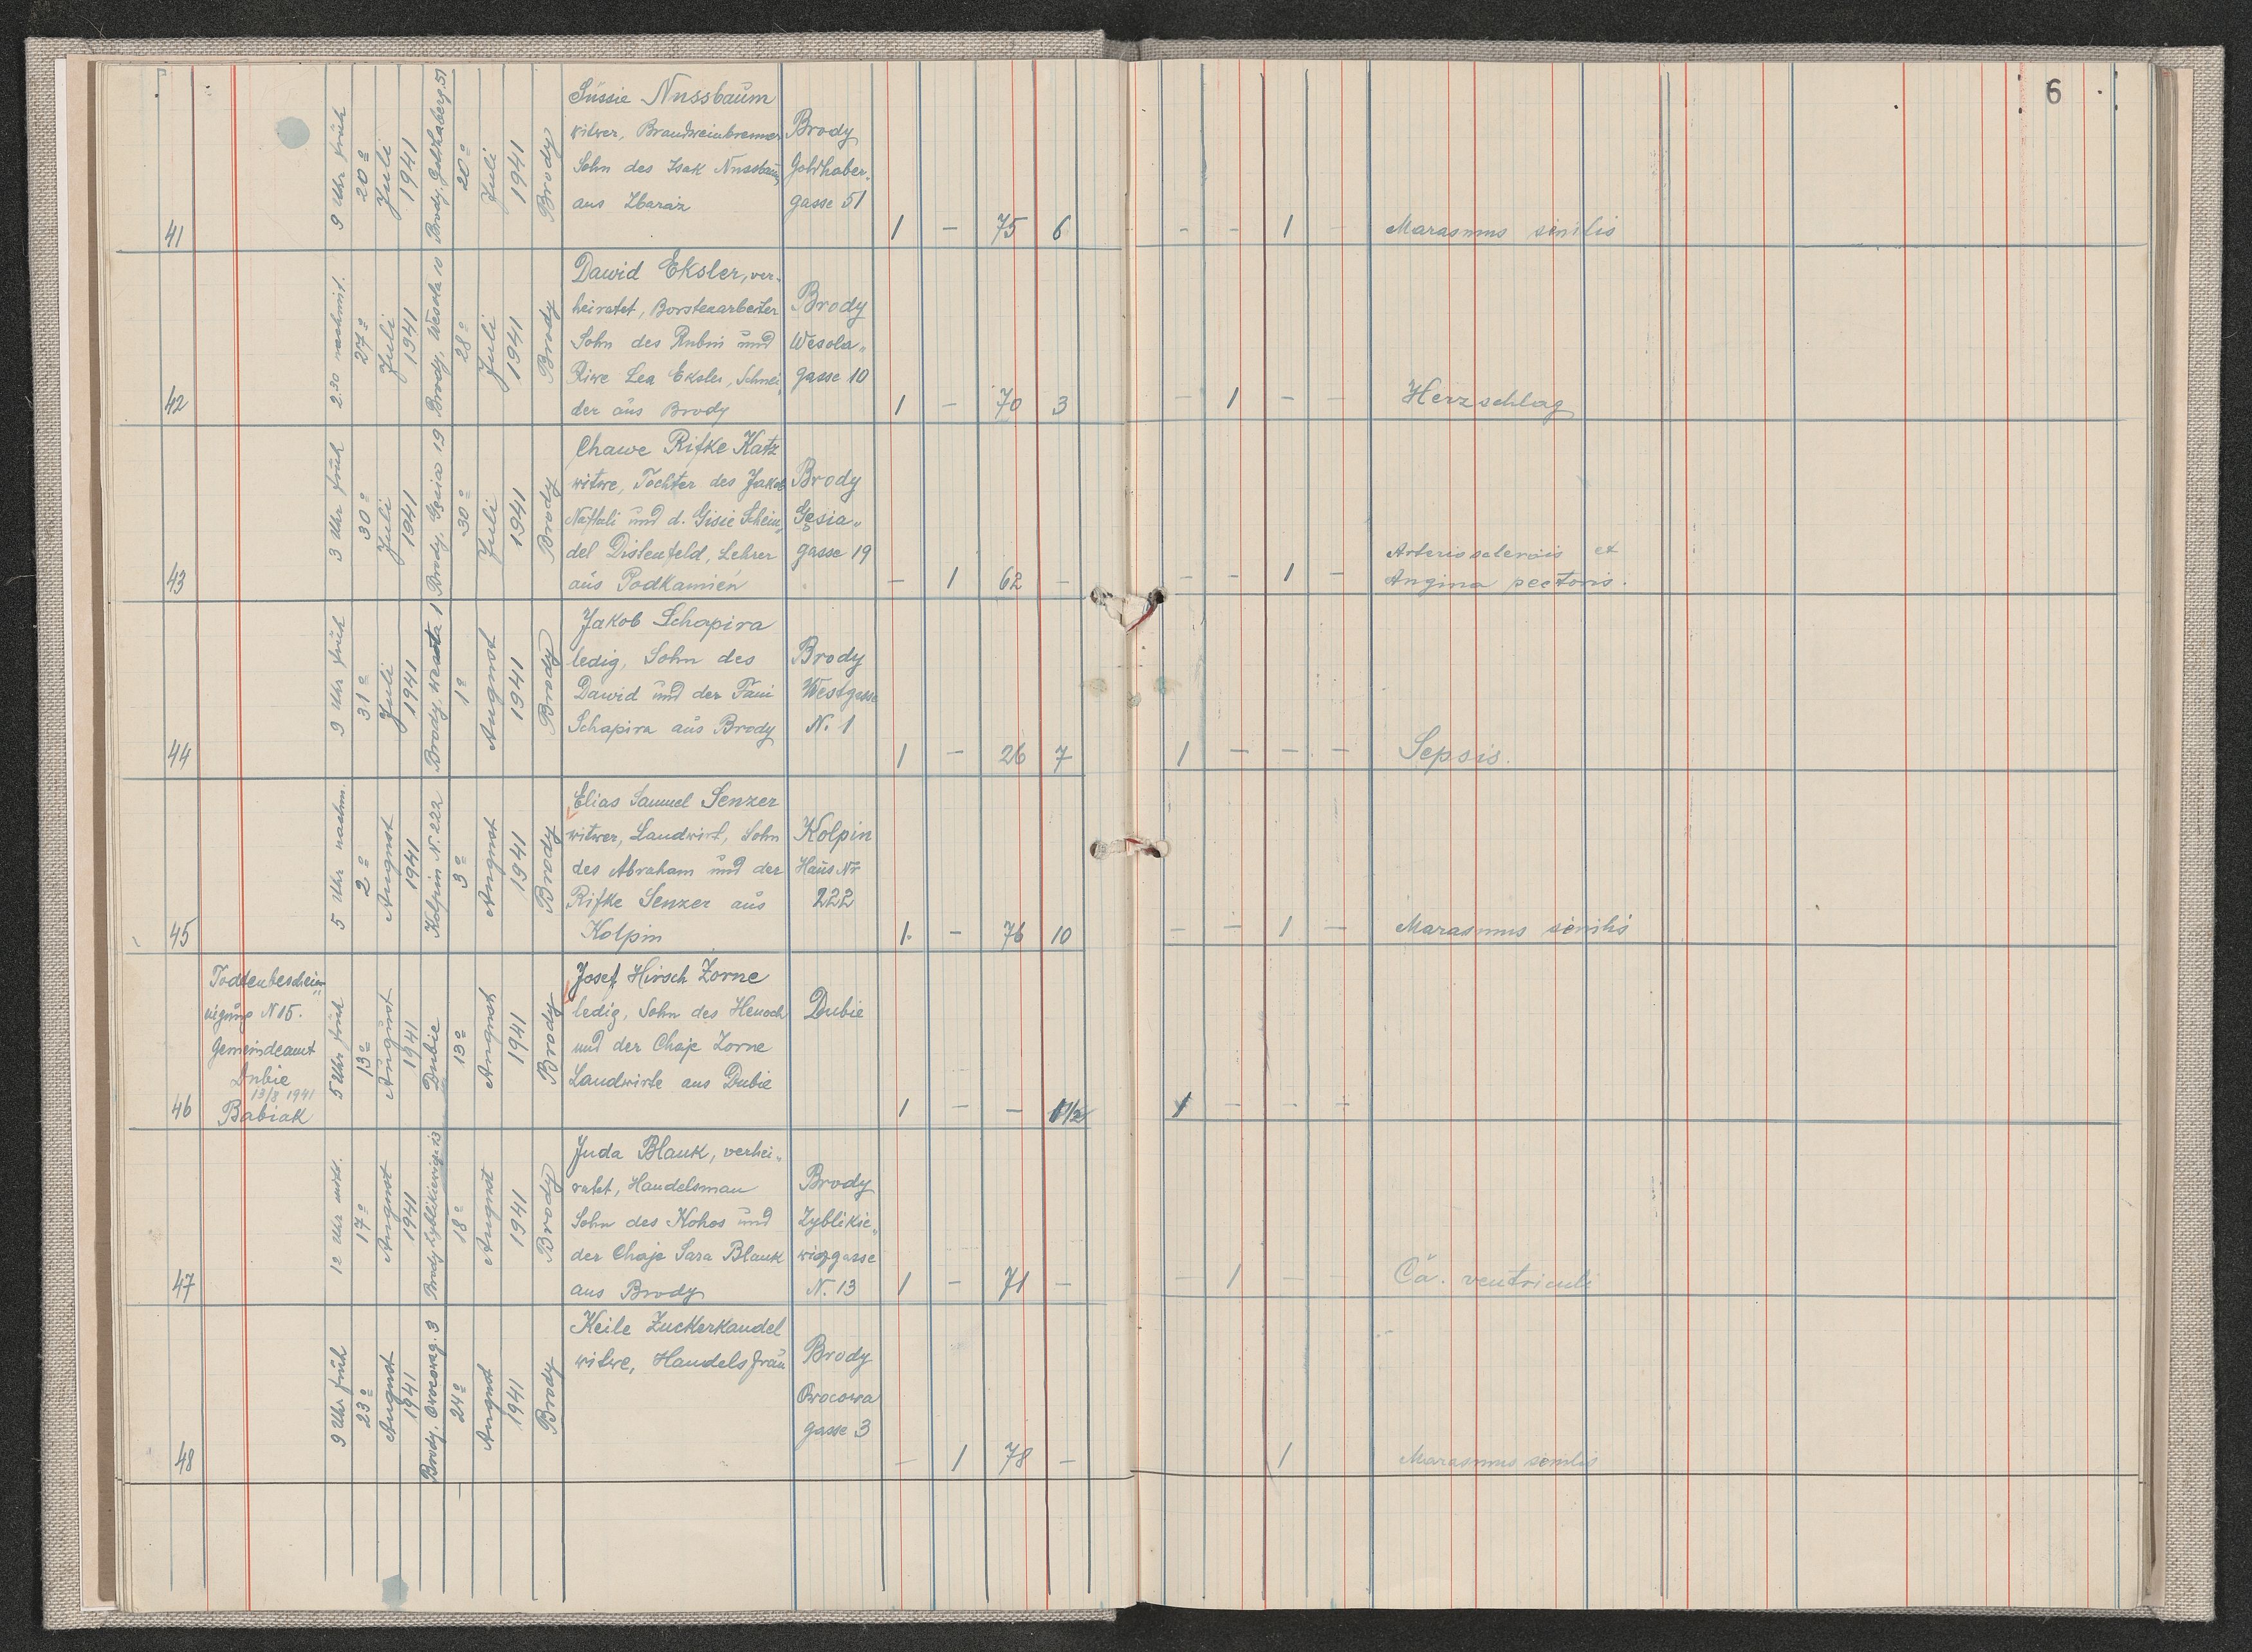 6
41
9 Uhr früh
20º
Juli
1941
Brody, Goldhaberg. 51
20º
Juli
1941
Brody
Süssie Nussbaum
witwer, Brandweinbrenner
Sohn des Isak Nussbaum
aus Zbaraż
Brody
Goldhaber-
gasse 51
1 - 75 6
- - 1 -
Marasmus sinilis
42
2.30 nachmit.
27º
Juli
1941
Brody, Wesoła 10
28º
Juli
1941
Brody
Dawid Eksler, ver-
heiratet, Borstenarbeiter
Sohn des Rubin und
Riwe Lea Eksler, Schnei„
der aus Brody
Brody
Wesola„
gasse 10
1 - 70 3
- 1 - -
Herzschlag
43
3 Uhr früh
30º
Juli
1941
Brody, Gęsia 19
30º
Juli
1941
Brody
Chawe Rifke Katz
witwe, Tochter des Jakob
Naftali und d. Gisie Schein„
del Distenfeld, Lehrer
aus Podkamień
Brody
Gęsia„
gasse 19
- 1 62 -
- - 1 -
Arteriosclerois et
Angina pectoris.
44
9 Uhr früh
31º
Juli
1941
Brody, 1
1º
August
1941
Brody
Jakob Schapira
ledig, Sohn des
Dawid und der Fani
Schapira aus Brody
Brody
Westgasse
N. 1
1 - 26 7
1 - - -
Sepsis.
45
5 Uhr nachm.
2º
August
1941
Kolpin N. 222
3º
August
1941
Brody
Elias Samuel Senzer
witwer, Landwirt, Sohn
des Abraham und der
Rifke Senzer aus
Kolpin
Kolpin
Haus Nr
222
1. - 76 10
- - 1 -
Marasmus sinilis
46
Todtenbeschei„
nigung N 15.
Gemeindeamt
Dubie
13/8 1941
Babiak
5 Uhr früh
13º
August
1941
Dubie
13º
August
1941
Brody
Josef Hirsch Zorne
ledig, Sohn des Henoch
und der Chaje Zorne
Landwirte aus Dubie
Dubie
1 - - 1/2
1 - - -
47
12 Uhr mitt.
17º
August
1941
Brody Zyblikiewiczg. 13
18º
August
1941
Brody
Juda Blauk, verhei„
ratet, Handelsman
Sohn des Kohos und
der Chaje Sara Blauk
aus Brody
Brody
Zyblikie„
wiczgasse
N. 13
1 - 71 -
- 1 -
Ca. ventriculi
48
9 Uhr früh
23º
August
1941
Brody, Owocowag. 3
24º
August
1941
Brody
Keile Zuckerkandel
witwe, Handelsfrau
Brody
Owocowa
gasse 3
- 1 78 -
1
Marasmus senilis